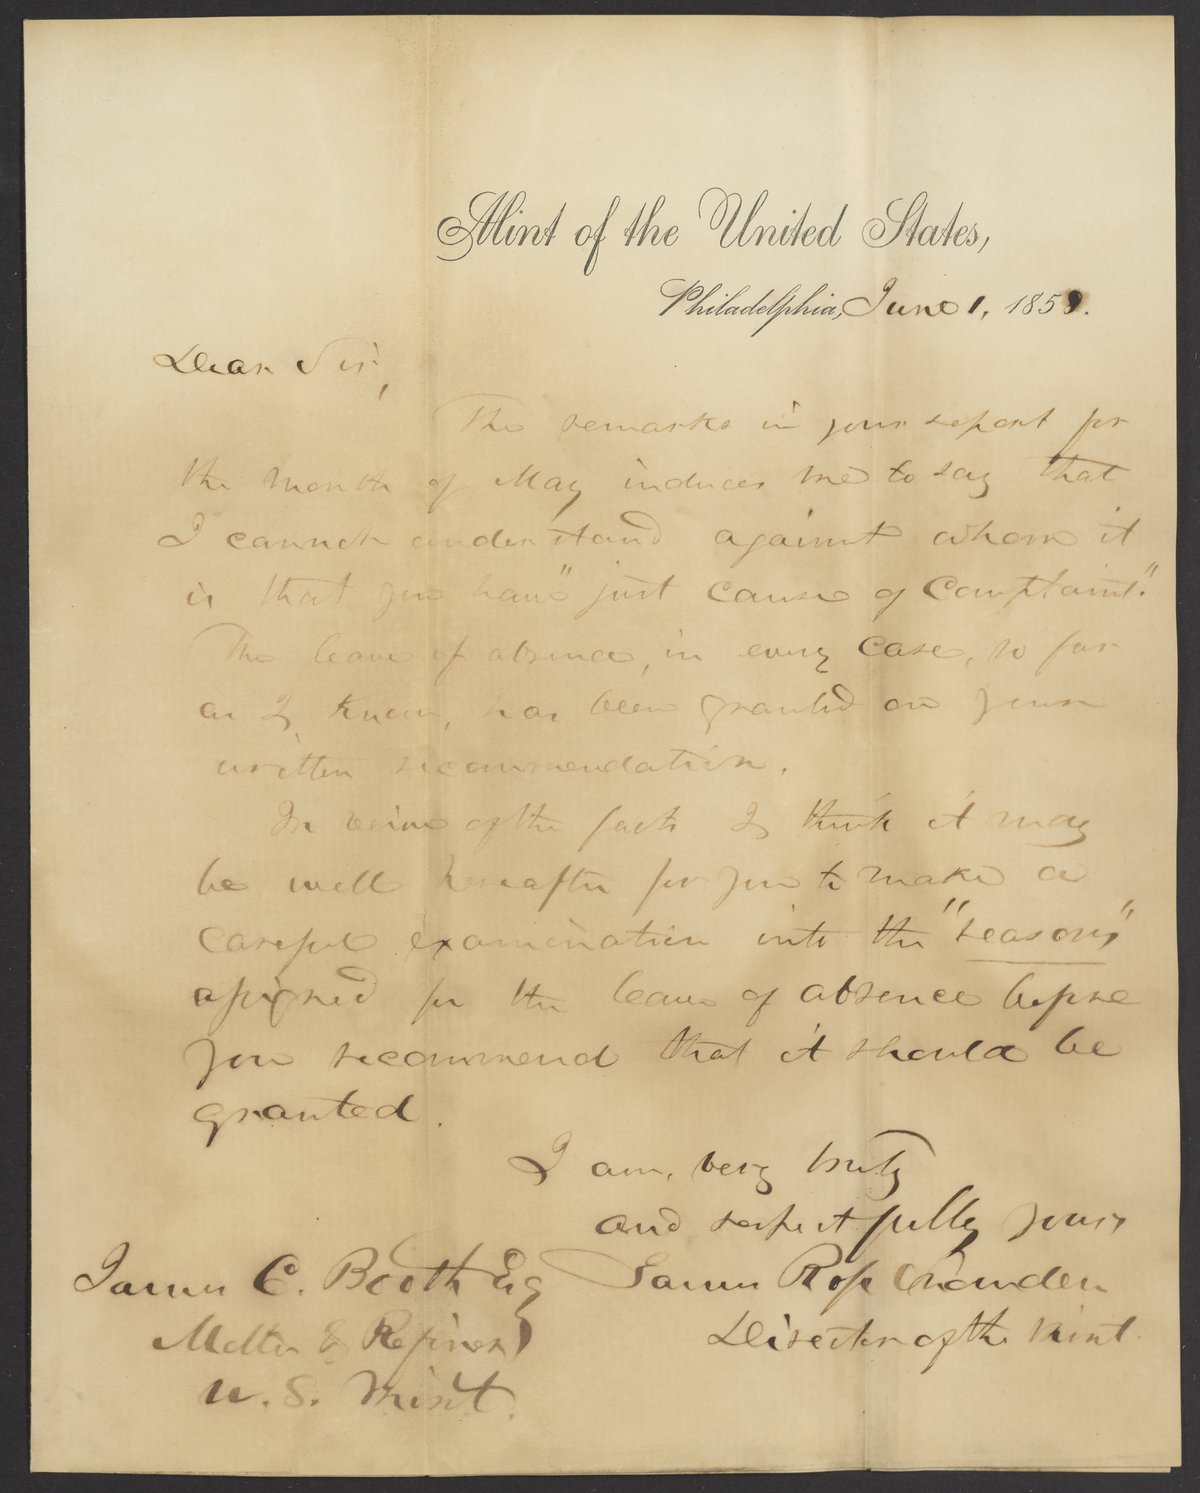 Mint of the United States,
Philadelphia, June 1, 1859.
Dear Sir,
The remarks in your report for
the month of May induces me to say that
I cannot understand against whom it
is that you have "just cause of complaint."
The leave of absence, in every case, so far
as I know, has been granted on your
written recommendation.
In view of the facts I think it may
be well hereafter for you to make a
careful examination into the "reasons"
assigned for the leave of absence before
you recommend that it should be
granted.
I am, very truly
and respectfully yours
James C. Booth Esq James Ross Snowden
Melter & Refiner Director of the Mint.
U. S. Mint.